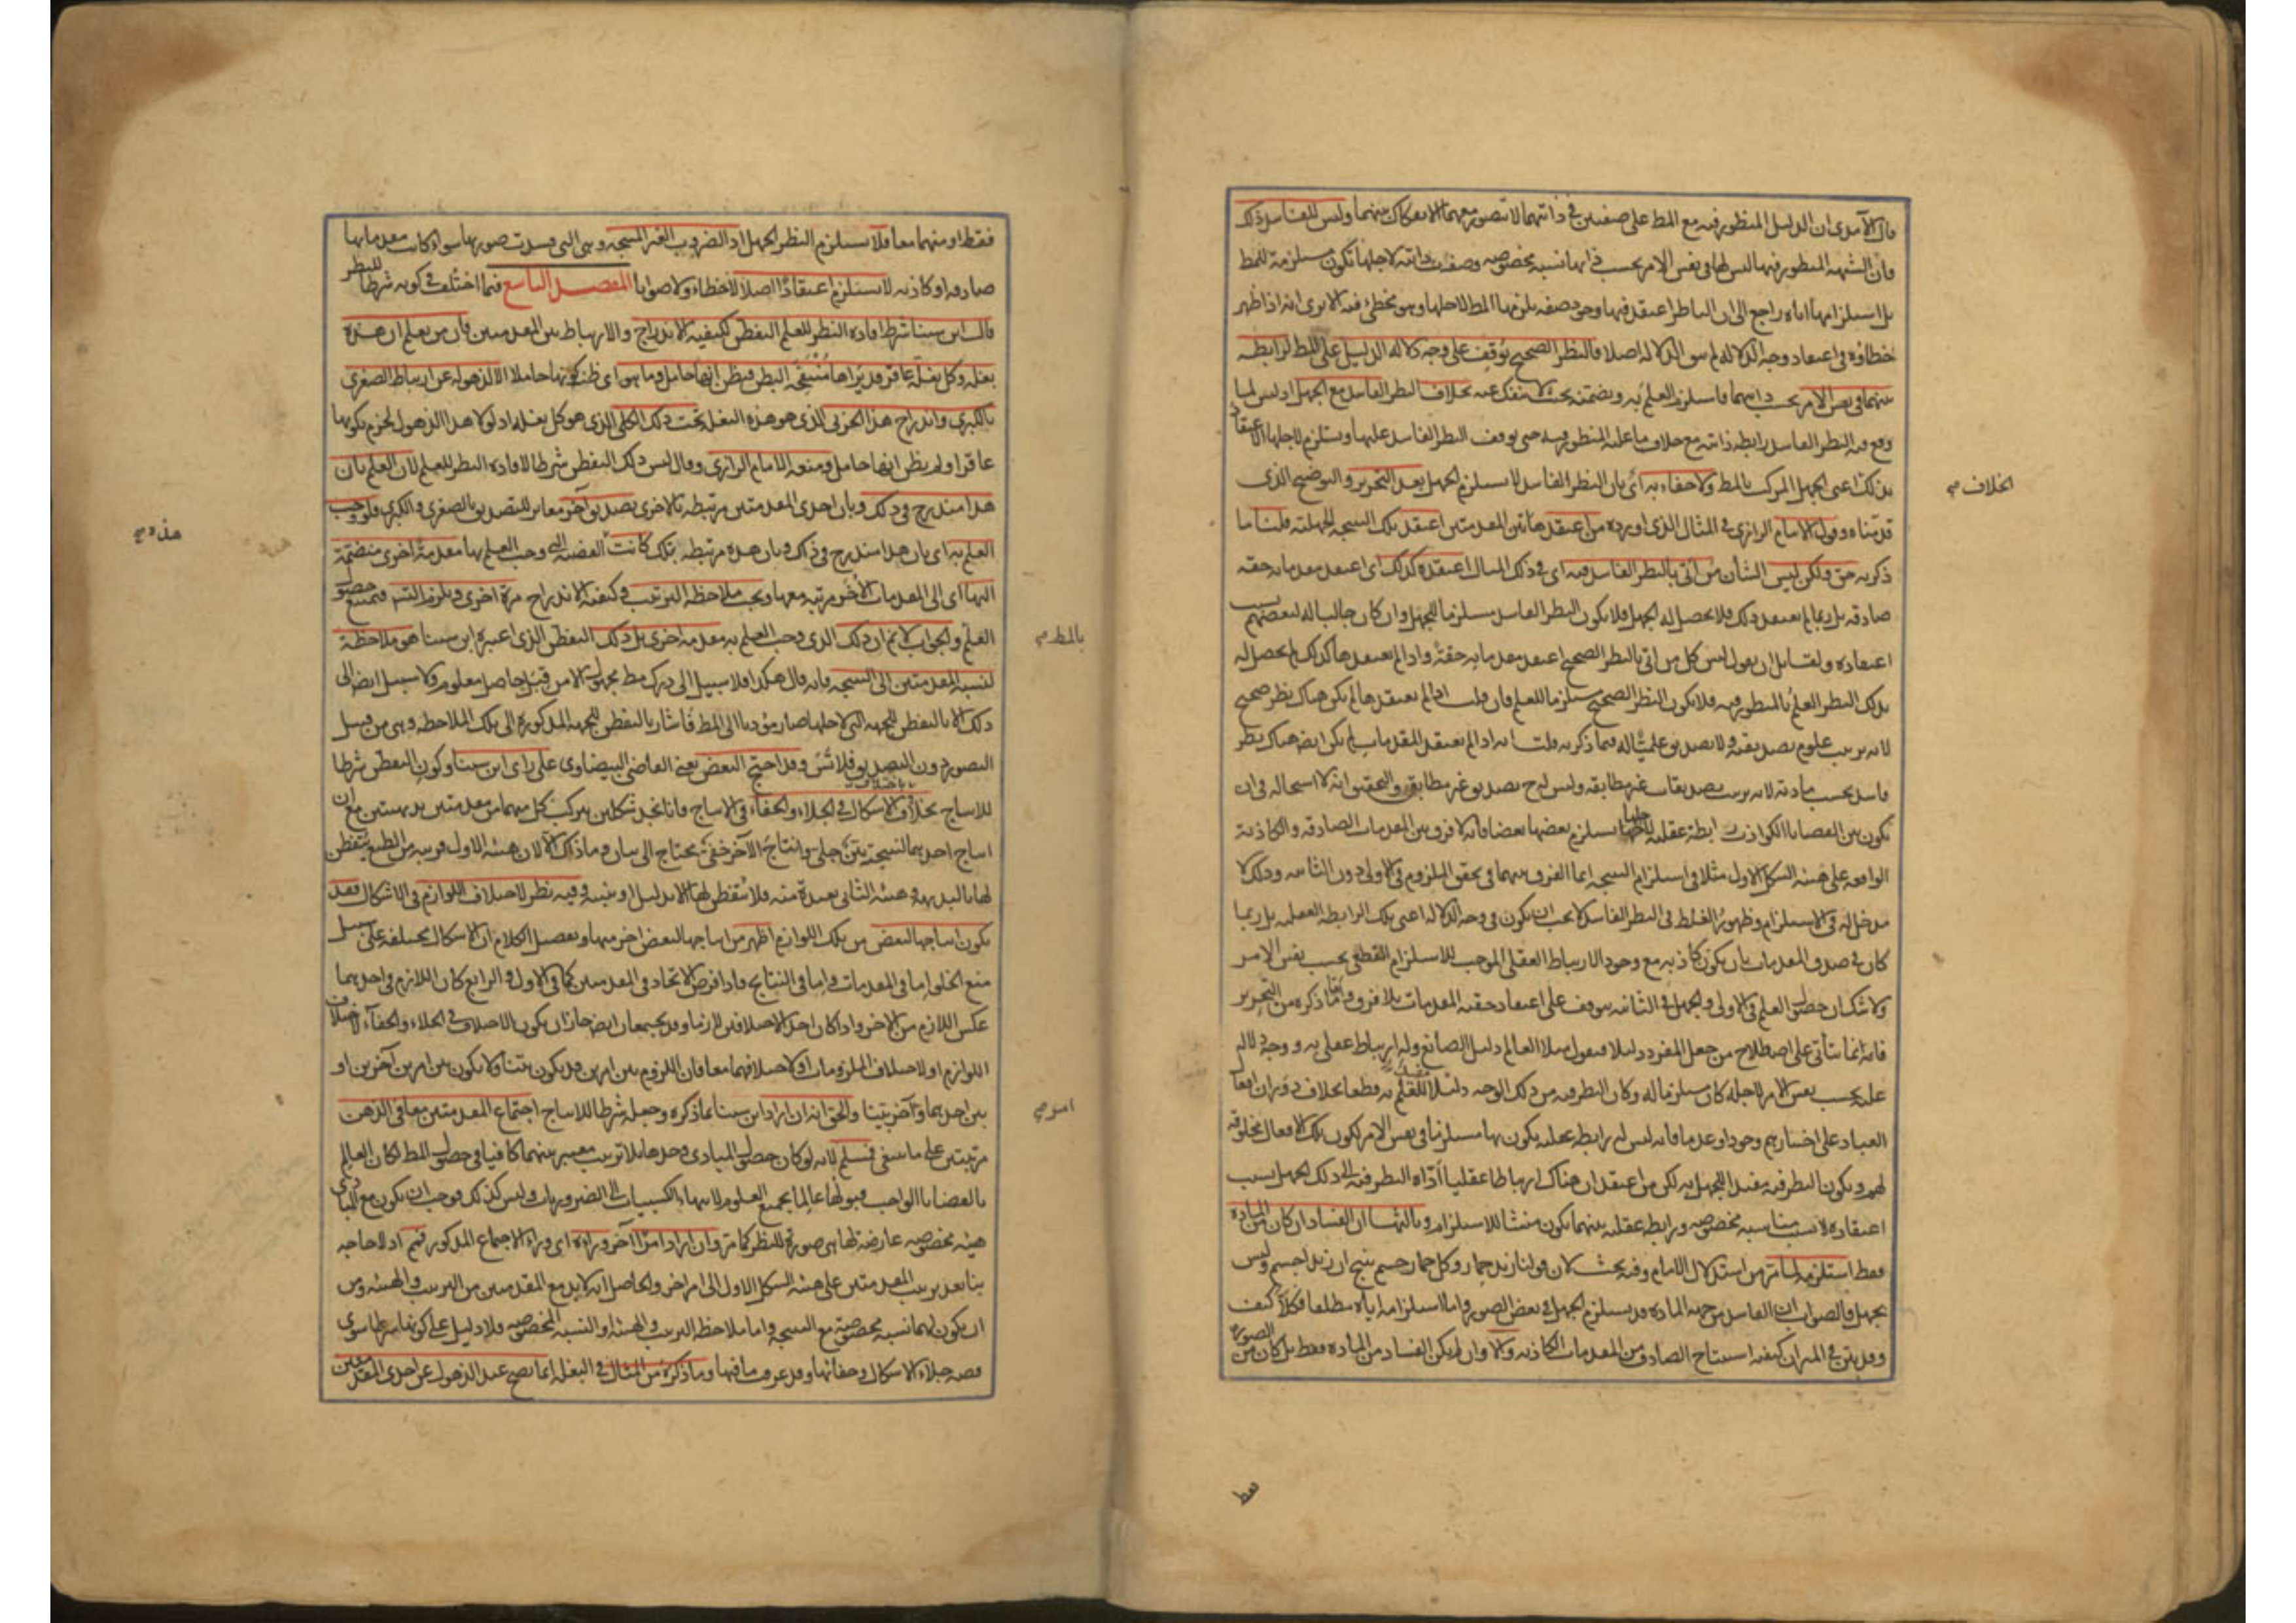 قال الآمدى ان الدليل المنظور فيه مع المط على صفتين فى ذاتيهما لا تتصور معهما الانفكاك بينهما وليس للفاسد ذلك
فان الشبهة المنظور فيها ليس لها فى نفس الامر بحسب ذاتها نسبة مخصوصة وصفة ذاتية لاجلها تكون مستلزمة للمط
بل استلزامها اياه راجع الى ان الناظر اعتقد فيها وجود صفة يلزمها المط لاجلها وهو مخطئ فيه الا يرى انه اذا ظهر
خطاؤه فى اعتقاد وجه الدلالة لم يبق الدلالة اصلا فالنظر الصحيح يوقف على وجه دلالة الدليل على المط لرابطة
بينهما فى نفس الامر بحسب ذاتيهما فاستلزم العلم به وتضمنه بحيث لا ينفك عنه بخلاف النظر الفاسد مع الجهل اذ ليس لما
وقع فيه النظر الفاسد رابطة ذاتية مع خلاف ما عليه المنظور فيه حتى يوقف النظر الفاسد عليها ويستلزم لاجلها الاعتقاد
بذلك اعنى الجهل المركب بالمط ولا خفاء به اى بان النظر الفاسد لا يستلزم الجهل بعد التحرير والتوضيح الذى
قدمناه وقول الامام الرازى فى المثال الذى اورده من اعتقد هاتين المقدمتين اعتقد تلك النتيجة الجهلية قلنا ما
ذكرته حق ولكن ليس الشأن من اتى بالنظر الفاسد فيه اى فى ذلك المثال اعتقده كذلك اى اعتقد مقدماته حقة
صادقة بل ربما لم يعتقد ذلك فلا يحصل له الجهل فلا يكون النظر الفاسد مستلزما للجهل وان كان جالبا له لبعضهم بسبب
اعتقاده ولقائل ان يقول ليس كل من اتى بالنظر الصحيح اعتقد مقدماته حقة واذا لم يعتقدها كذلك لم يحصل له
بذلك النظر العلم بالمنظور فيه فلا يكون النظر الصحيح مستلزما للعلم فان قلت اذا لم يعتقدها لم يكن هناك نظر صحيح
لانه ترتيب علوم تصديقية ولا تصديق علميا له فيما ذكرته قلت انه اذا لم يعتقد المقدمات لم يكن ايضا هناك نظر
فاسد بحسب مادته لانه ترتيب تصديقات غير مطابقة وليس له ح تصديق غير مطابق والتحقيق انه لا استحالة فى ان
يكون بين القضايا الكواذب رابطة عقلية لاجلها يستلزم بعضها بعضا فانه لا فرق بين المقدمات الصادقة والكاذبة
الواقعة على هيئة الشكل الاول مثلا فى استلزام النتيجة انما الفرق بينهما فى تحقق الملزوم فى الاولى دون الثانية وذلك لا
مدخل له فى الاستلزام وظهور الغلط فى النظر الفاسد لا يجب ان يكون فى وجه الدلالة اعنى تلك الرابطة العقلية بل ربما
كان فى صدق المقدمات بان يكون كاذبة مع وجود الارتباط العقلى الموجب للاستلزام القطعى بحسب نفس الامر
ولا شك ان حصول العلم فى الاولى والجهل فى الثانية يتوقف على اعتقاد حقية المقدمات بلا فرق واما ما ذكره من التحرير
فانه انما يتأتى على اصطلاح من جعل المفرد دليلا فيقول مثلا العالم دليل الصانع وله ارتباط عقلى به ووجه دلالة
عليه بحسب نفس الامر لاجله كان مستلزما له وكان النظر فيه من ذلك الوجه دليلا للعلم به قطعا بخلاف دوران افعال
العباد على اختيارهم وجودا وعدما فانه ليس له رابطة عقلية يكون بها مستلزما فى نفس الامر لكون تلك الافعال مخلوقة
لهم ويكون النظر فيه يفيد الجهل به لكن من اعتقد ان هناك ارتباطا عقليا اداه النظر فيه الى ذلك الجهل بسبب
اعتقاده لا بسبب مناسبة مخصوصة ورابطة عقلية بينهما يكون منشئا للاستلزام وثالثها ان الفساد ان كان من المادة
فقط استلزمه لما مر من استدلال الامام وفيه بحث لان قولنا زيد حمار وكل حمار جسم ينتج ان زيدا جسم وليس
بجهل فالصواب ان الفاسد من جهة المادة قد يستلزم الجهل فى بعض الصور واما استلزامه اياه مطلقا فكلا كيف
وقد بين فى الميزان كيفية استنتاج الصادق من المقدمات الكاذبة والا وان لم يكن الفساد من المادة فقط بل كان من الصورة
الخلاف صح
فقط
فقط او منهما معا فلا يستلزم النظر الجهل اذ الضروب الغير المنتجة وهى التى فسدت صورتها سواء كانت مقدماتها
صادقة او كاذبة لا يستلزم اعتقادا اصلا لا خطاء ولا صوابا المقصد التاسع فيما اختلف فى كونه شرطا للنظر
قال ابن سينا شرط افادة النظر للعلم التفطن لكيفية الاندراج والارتباط بين المقدمتين فان من يعلم ان هذه
بغلة وكل بغلة عاقر قد يراها منتفخة البطن فيظن انها حامل وما هو اى ظن كونها حاملا الا لذهوله عن ارتباط الصغرى
بالكبرى واندراج هذا الجزئى الذى هو هذه البغلة تحت ذلك الكلى الذى هو كل بغلة اذ لولا هذا الذهول لجزم بكونها
عاقرا ولم يظن انها حامل ومنعه الامام الرازى وقال ليس ذلك التفطن شرطا لافادة النظر للعلم لان العلم بان
هذا مندرج فى ذلك وبان احدى المقدمتين مرتبطة بالاخرى تصديق آخر مغاير للتصديق بالصغرى والكبرى فلو وجب
العلم به اى بان هذا مندرج فى ذاك وبان هذه مرتبطة بتلك كانت القضية التى وجب العلم بها مقدمة اخرى منضمة
اليها اى الى المقدمات الأخر مرتبة معها ويجب ملاحظة الترتيب وكيفية الاندراج مرة اخرى ويلزم التس فيمتنع حصول
العلم والجواب لا نم ان ذلك الذى وجب العلم به مقدمة اخرى بل ذلك التفطن الذى اعتبره ابن سينا هو ملاحظة
لنسبة المقدمتين الى النتيجة فانه قال هكذا فلا سبيل الى درك مط مجهول الا من قبل حاصل معلوم ولا سبيل ايضا الى
ذلك الا بالتفطن للجهة التى لاجلها صار مؤديا الى المط فاشار بالتفطن للجهة المذكورة الى تلك الملاحظة وهى من قبيل
التصور دون التصديق فلا تس وقد احتج البعض يعنى القاضى البيضاوى على راى ابن سينا وكون التفطن شرطا
للانتاج بخلاف الاشكال فى الجلاء والخفاء فى الانتاج فانا نجد شكلين يتركب كل منهما من مقدمتين بديهيتين مع ان
انتاج احديهما لنتيجته بين جلى وانتاج الآخر خفى يحتاج الى بيان وما ذاك الا لان هيئة الاول قريبة من الطبع يتفطن
لها بالبديهة وهيئة الثانى بعيدة منه فلا يتفطن لها الا بدليل او بينة وفيه نظر لاختلاف اللوازم فى الاشكال فقد
يكون انتاجها لبعض من تلك اللوازم اظهر من انتاجها لبعض اخر منها وتفصيل الكلام ان الاشكال مختلفة على سبيل
منع الخلو اما فى المقدمات واما فى النتايج فاذا فرض الاتحاد فى المقدمتين كما فى الاول والرابع كان اللازم فى احدهما
عكس اللازم من الاخر واذا كان احد الاختلافين لازما وقد يجتمعان ايضا جاز ان يكون الاختلاف فى الجلاء والخفاء لاختلاف
اللوازم او لاختلاف الملزومات او لاختلافهما معا فان اللزوم بين امرين قد يكون بينا ولا يكون بين امرين آخرين او
بين احدهما وآخر بينا والحق انه ان اراد ابن سينا بما ذكره وجعله شرطا للانتاج اجتماع المقدمتين معا فى الذهن
مرتبتين على ما ينبغى فمسلم لانه لو كان حصول المبادى وحدها بلا ترتيب معتبر بينهما كافيا فى حصول المط لكان العالم
بالقضايا الواجب قبولها عالما بجميع العلوم لانتهاء الكسبيات الى الضروريات وليس كذلك فوجب ان يكون مع المبادى
هيئة مخصوصة عارضة لها هى صورة للنظر كما مر وان اراد امرا آخر وراءه اى وراء الاجتماع المذكور فمنع اذ لا حاجة
بنا بعد ترتيب المقدمتين على هيئة الشكل الاول الى امر اخر والحاصل انه لا بد مع المقدمتين من الترتيب والهيئة ومن
ان يكون لهما نسبة مخصوصة مع النتيجة واما ملاحظة الترتيب والهيئة او النسبة المخصوصة فلا دليل على كونها شرطا سوى
قصة جلاء الاشكال وخفائها وقد عرفت ما فيها وما ذكره من المثال فى البغلة انما يصح عند الذهول عن احدى المقدمتين
بالمط صح
امر صح